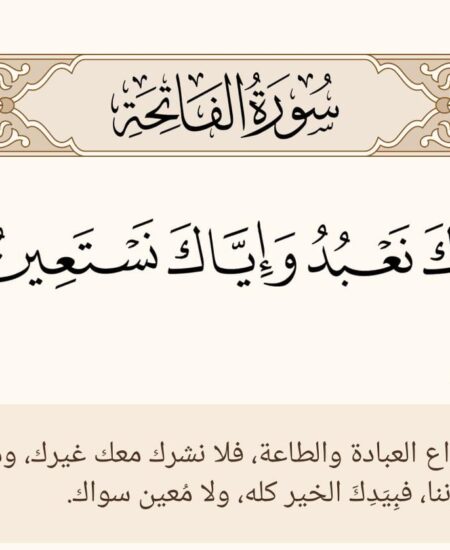 سُورَةُ الفَاتِحَةِ
كَ نَعْبُدُ وَإِيَّاكَ نَسْتَعِين
اع العبادة والطاعة، فلا نشرك معك غيرك، و
ننا، فبِيَدِكَ الخير كله، ولا مُعين سواك.